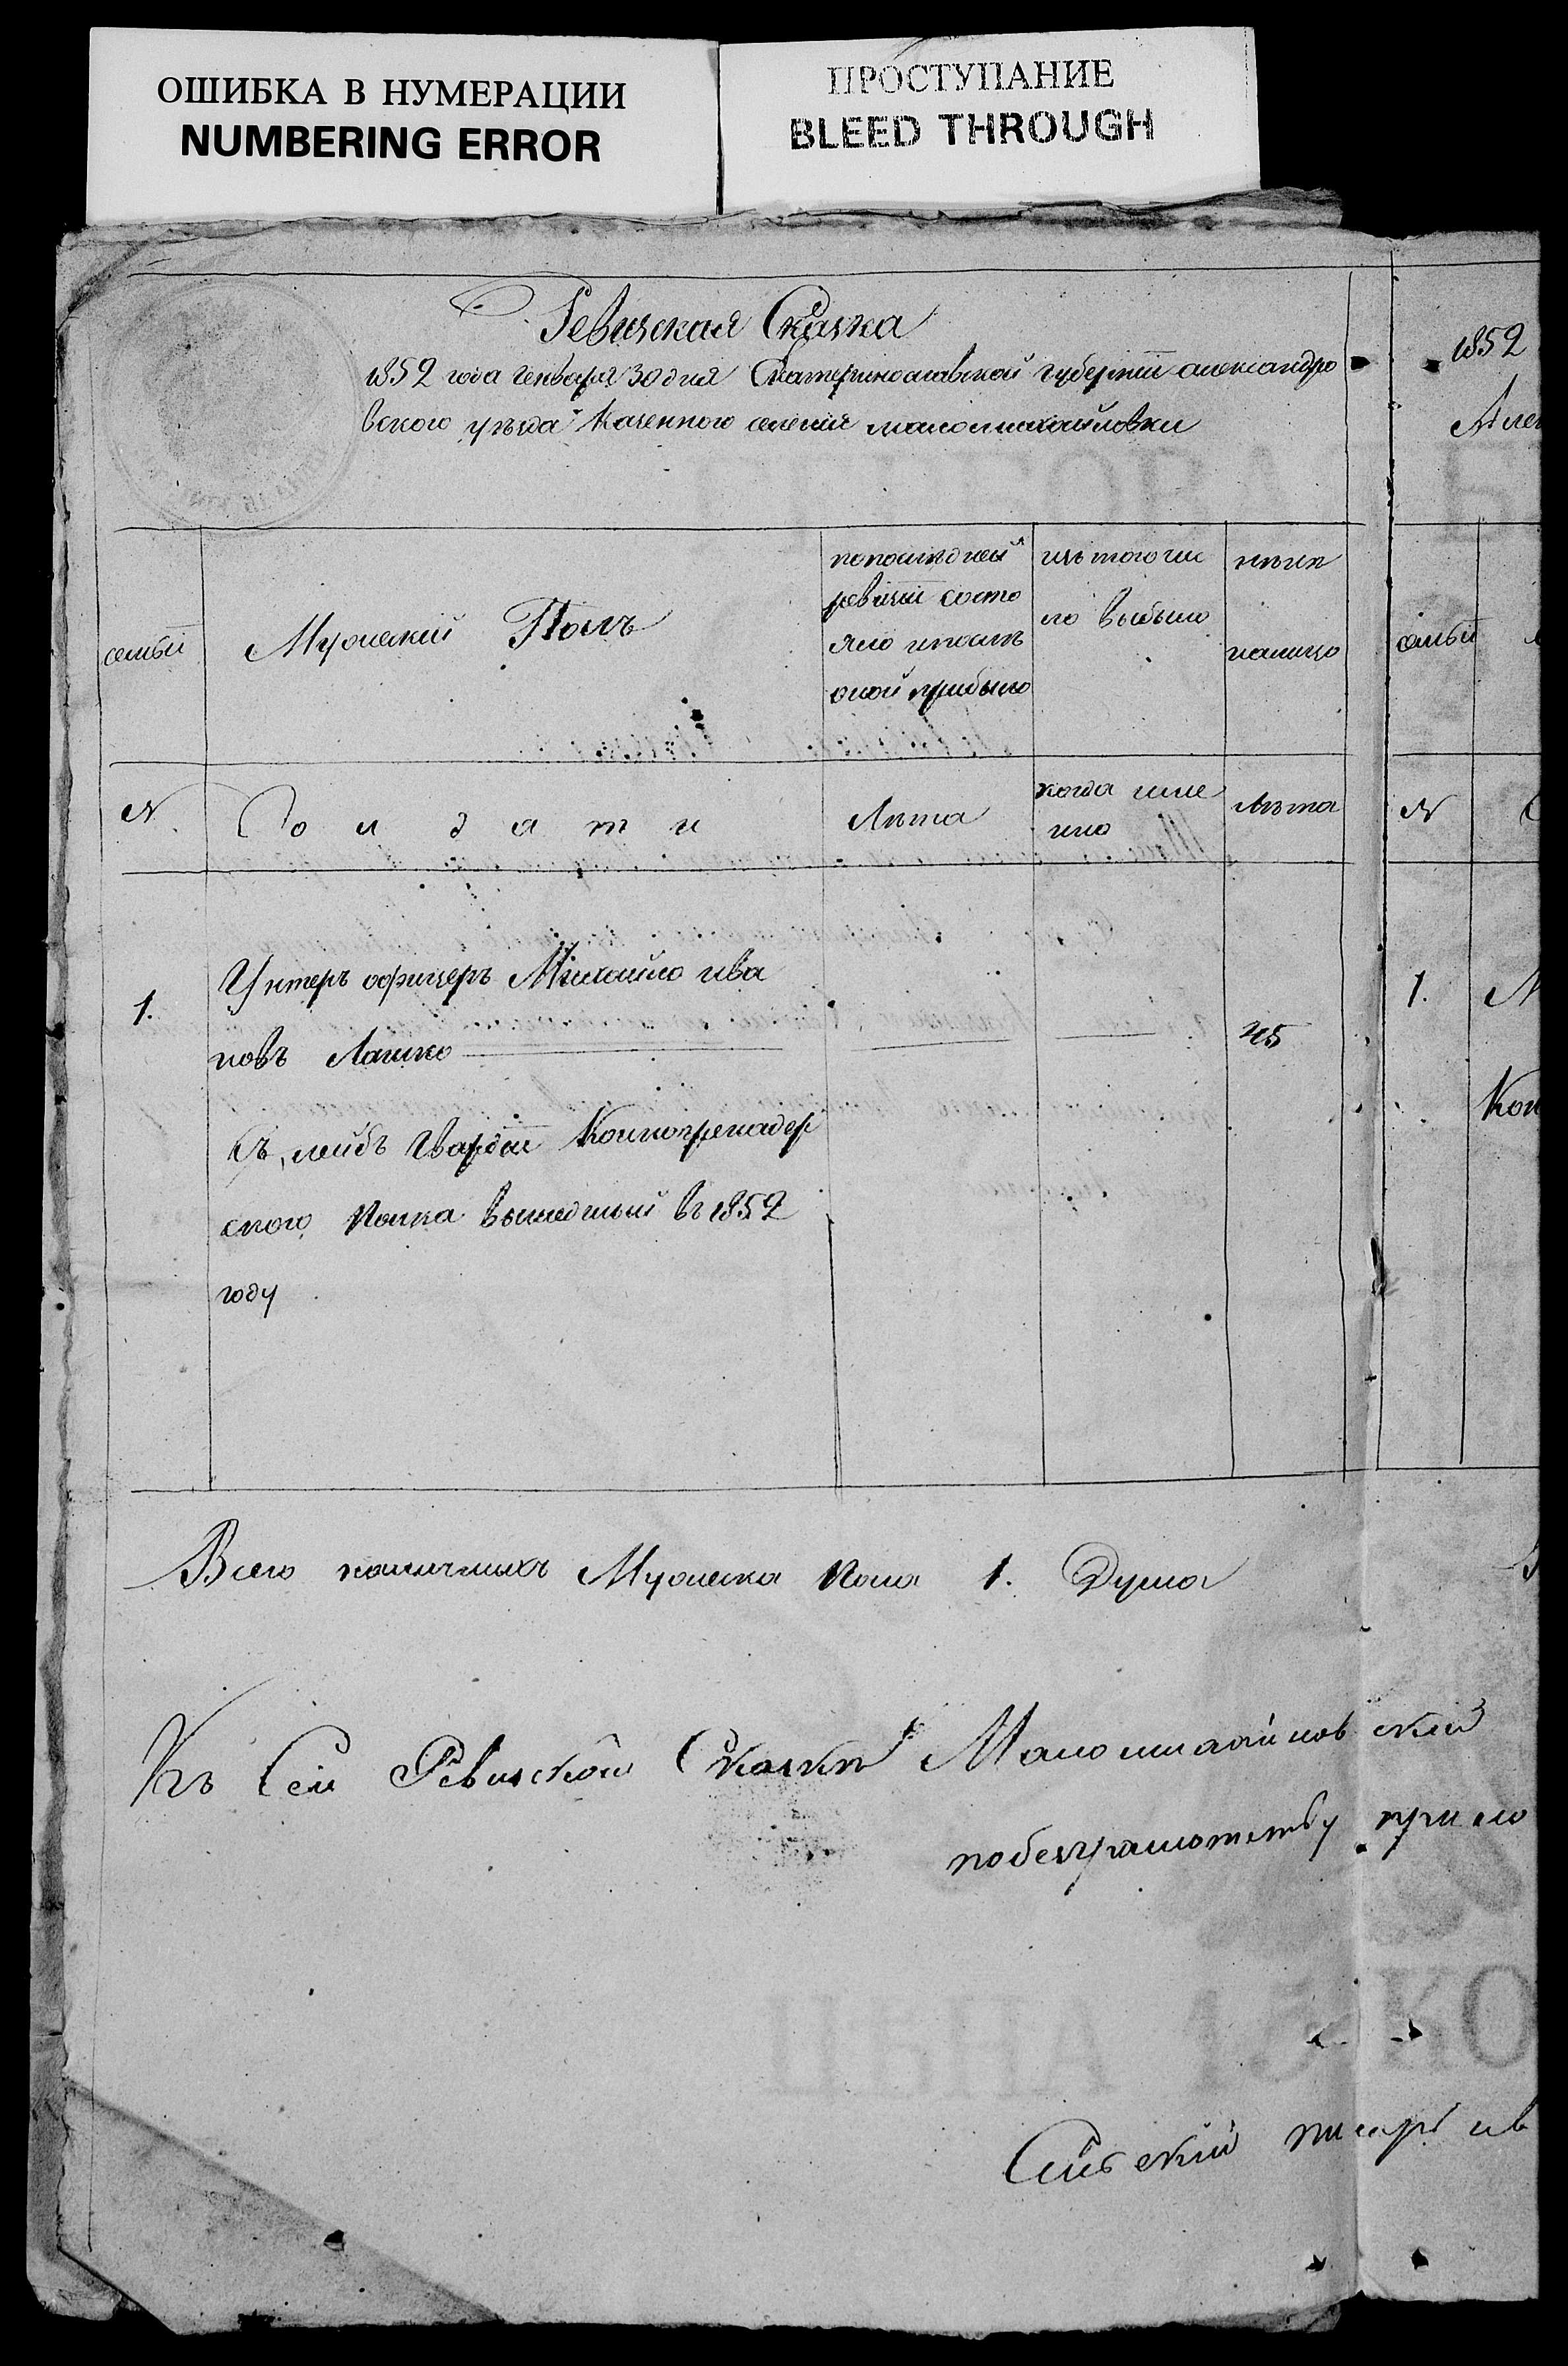 ОШИБКА В НУМЕРАЦИИ
NUMBERING ERROR
ПРОСТУПАНИЕ
BLEED THROUGH
Ревизская Сказка
1852 года Генваря 30 дня Екатеринославской губернiи александро
вского уезда Казенного селения маломихайловки
семьи
Мужеский Полъ
попоследней
ревизiи состо
яло ипосле
оной прибыло
изътогочис
ло выбыло
ныне
налицо
N.
Солдати
Лета
когда име
нно
Лета
1.
Унтеръ офицеръ Михайло ива
новъ Лашко
45
Съ лейбъ Гвардiи Конногренадер
ского Полка вышедший въ 1852
году
Всего наличныхъ Мужеска Пола 1. Душа
Къ Сей Ревиской Сказки Маломихайловский
побезграмотству прило
Сельский писарь ив
1852
Алек
семьи
N
1.
Кон